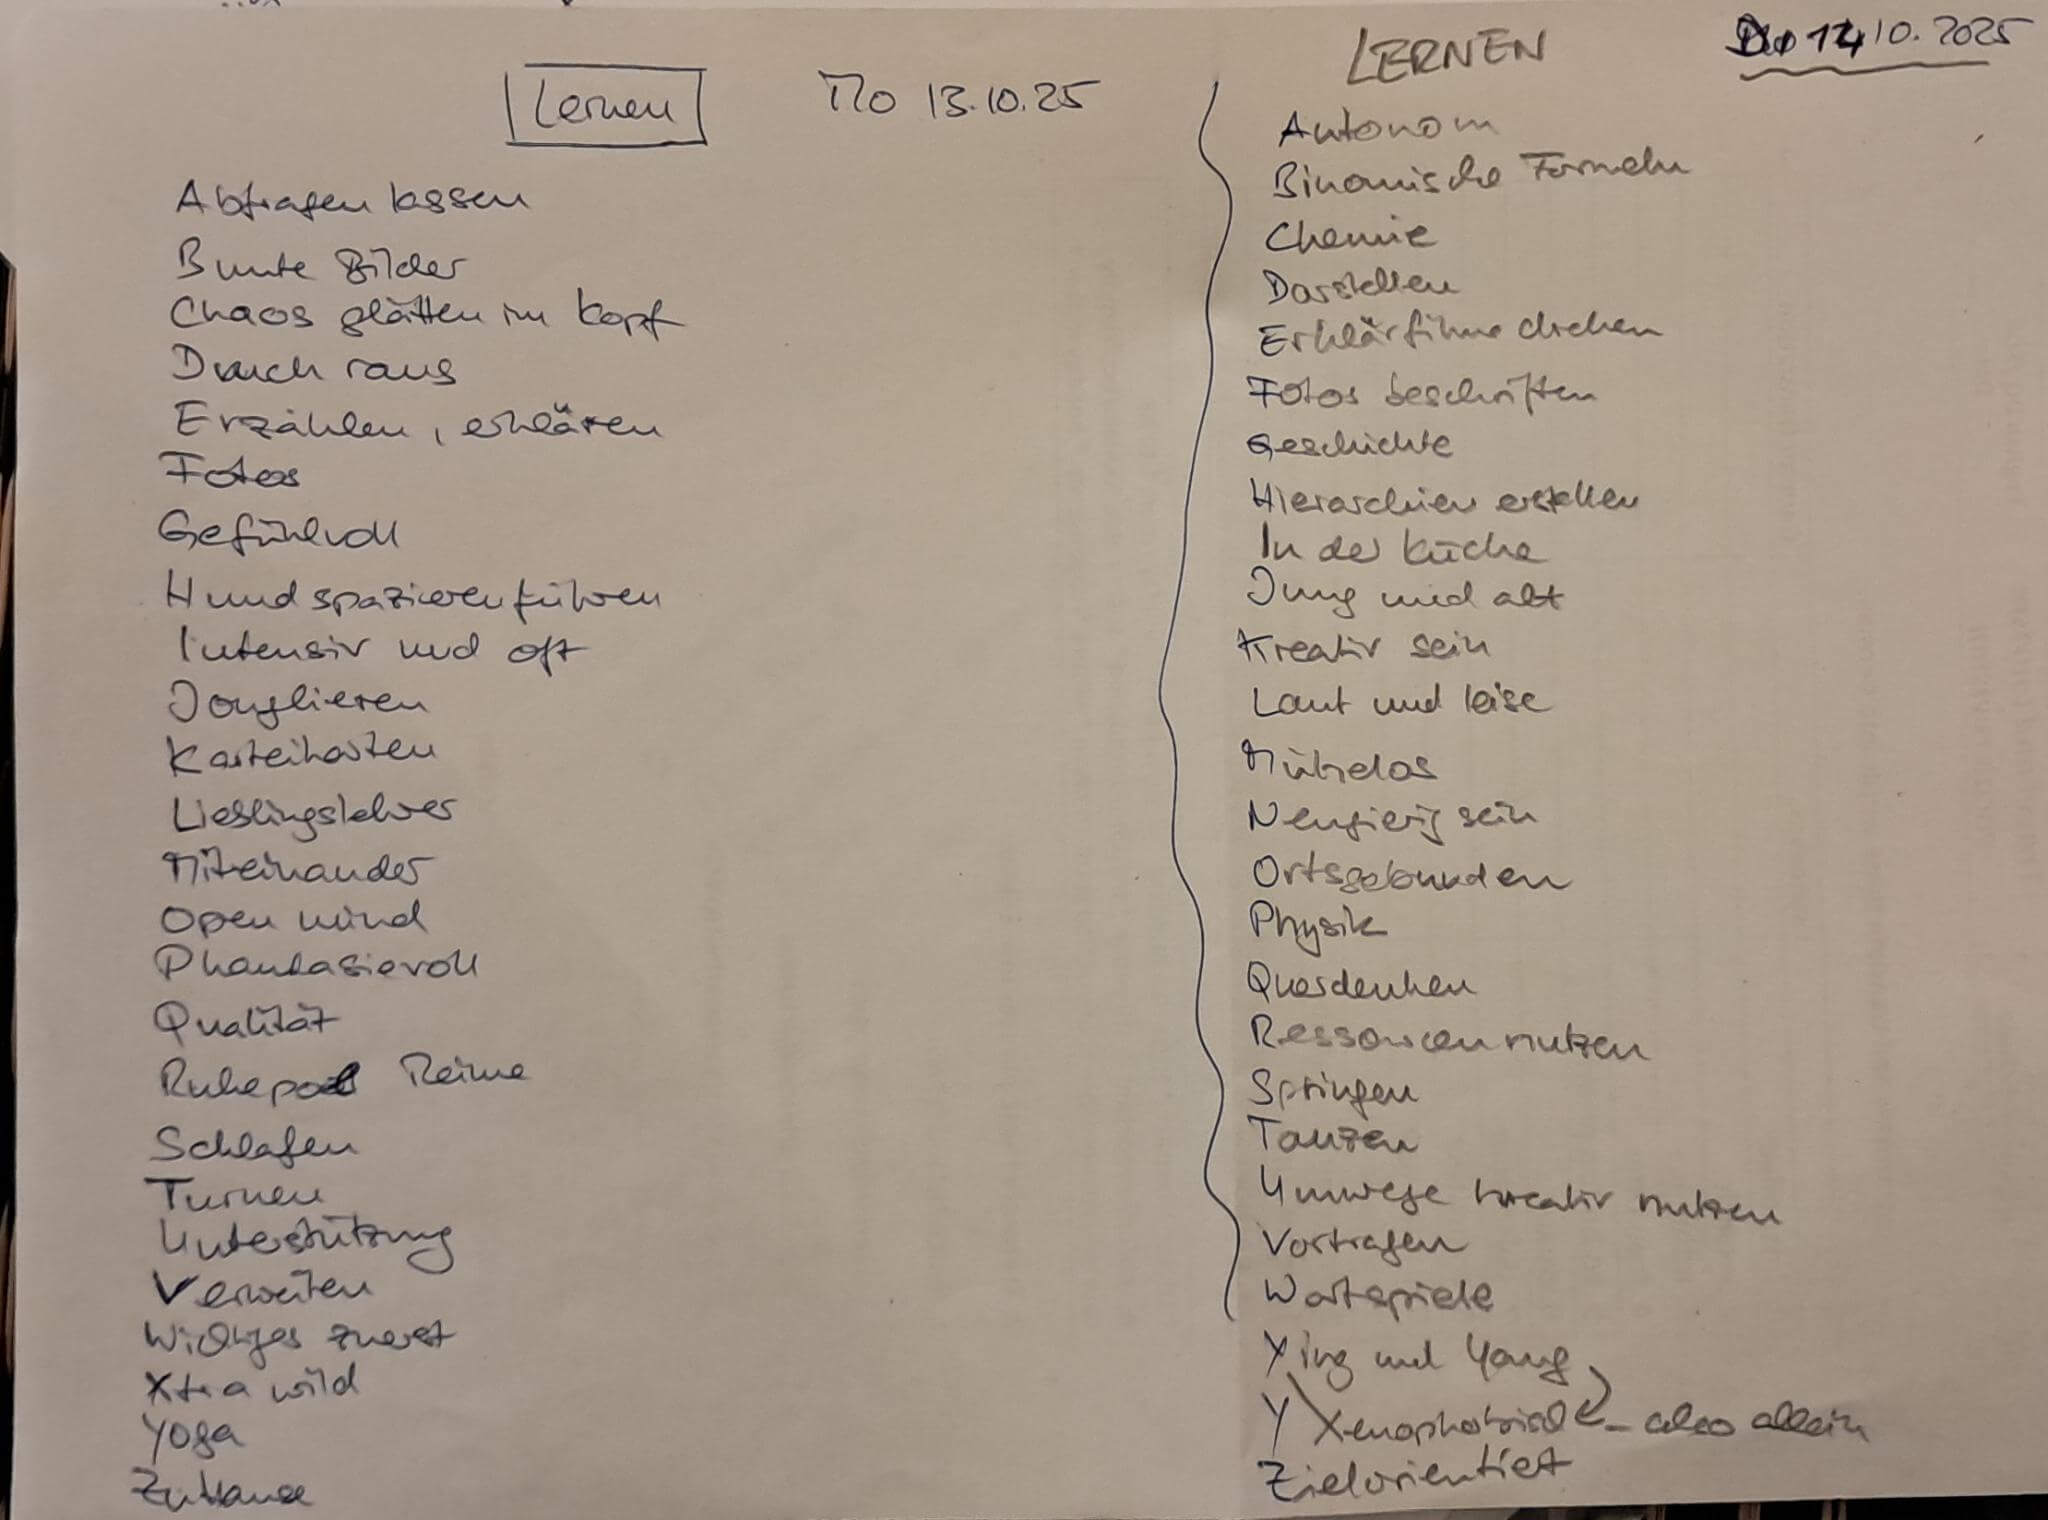 Lernen Mo 13.10.25
Abfragen lassen
Bunte Bilder
Chaos glätten im Kopf
Druck raus
Erzählen, erklären
Fotos
Gefühlvoll
Hund spazieren führen
Intensiv und oft
Jonglieren
Karteikarten
Lieblingslehrer
Miteinander
Open mind
Phantasievoll
Qualität
Ruhepol Reime
Schlafen
Turnen
Unterstützung
Verweilen
Wichtiges zuerst
Xtra wild
Yoga
Zuhause
LERNEN 14 10. 2025
Autonom
Binomische Formeln
Chemie
Darstellen
Erklärfilme drehen
Fotos beschriften
Geschichte
Hierarchien erstellen
In der Küche
Jung und alt
Kreativ sein
Laut und leise
Mühelos
Neugierig sein
Ortsgebunden
Physik
Querdenken
Ressourcen nutzen
Springen
Tanzen
Umwege kreativ nutzen
Vortragen
Wortspiele
Ying und Yang
Y Xenophobisch - also allein
Zielorientiert